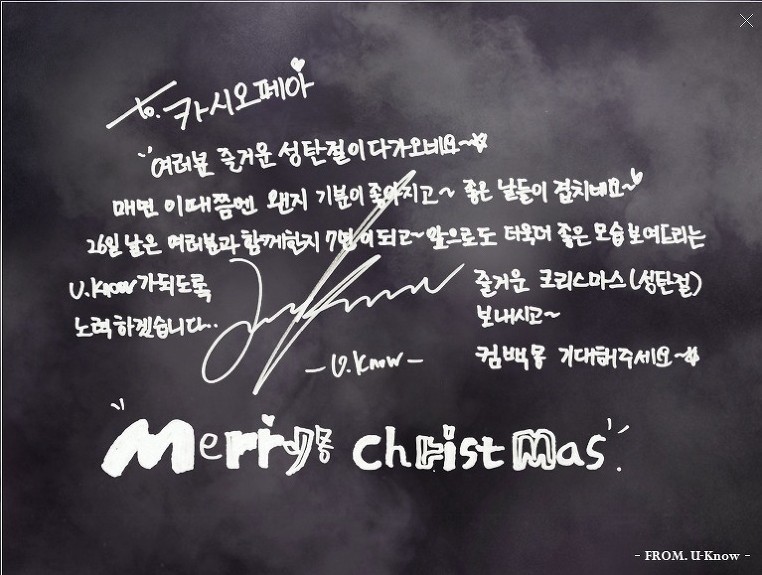 to. 카시오페아
여러분 즐거운 성탄절이다가오네요~
매번 이때쯤엔 왠지 기분이 좋아지고~ 좋은 날들이 겹치네요~
26일 날은 여러분과 함께한지 7년이 되고~ 앞으로도 더욱더 좋은 모습 보여드리는
U.Know가되도록
노력하겠습니다..
즐거운 크리스마스(성탄절)
보내시고~
컴백두 기대해주세요~
- U.Know -
Merry christmas
- FROM. U-Know -